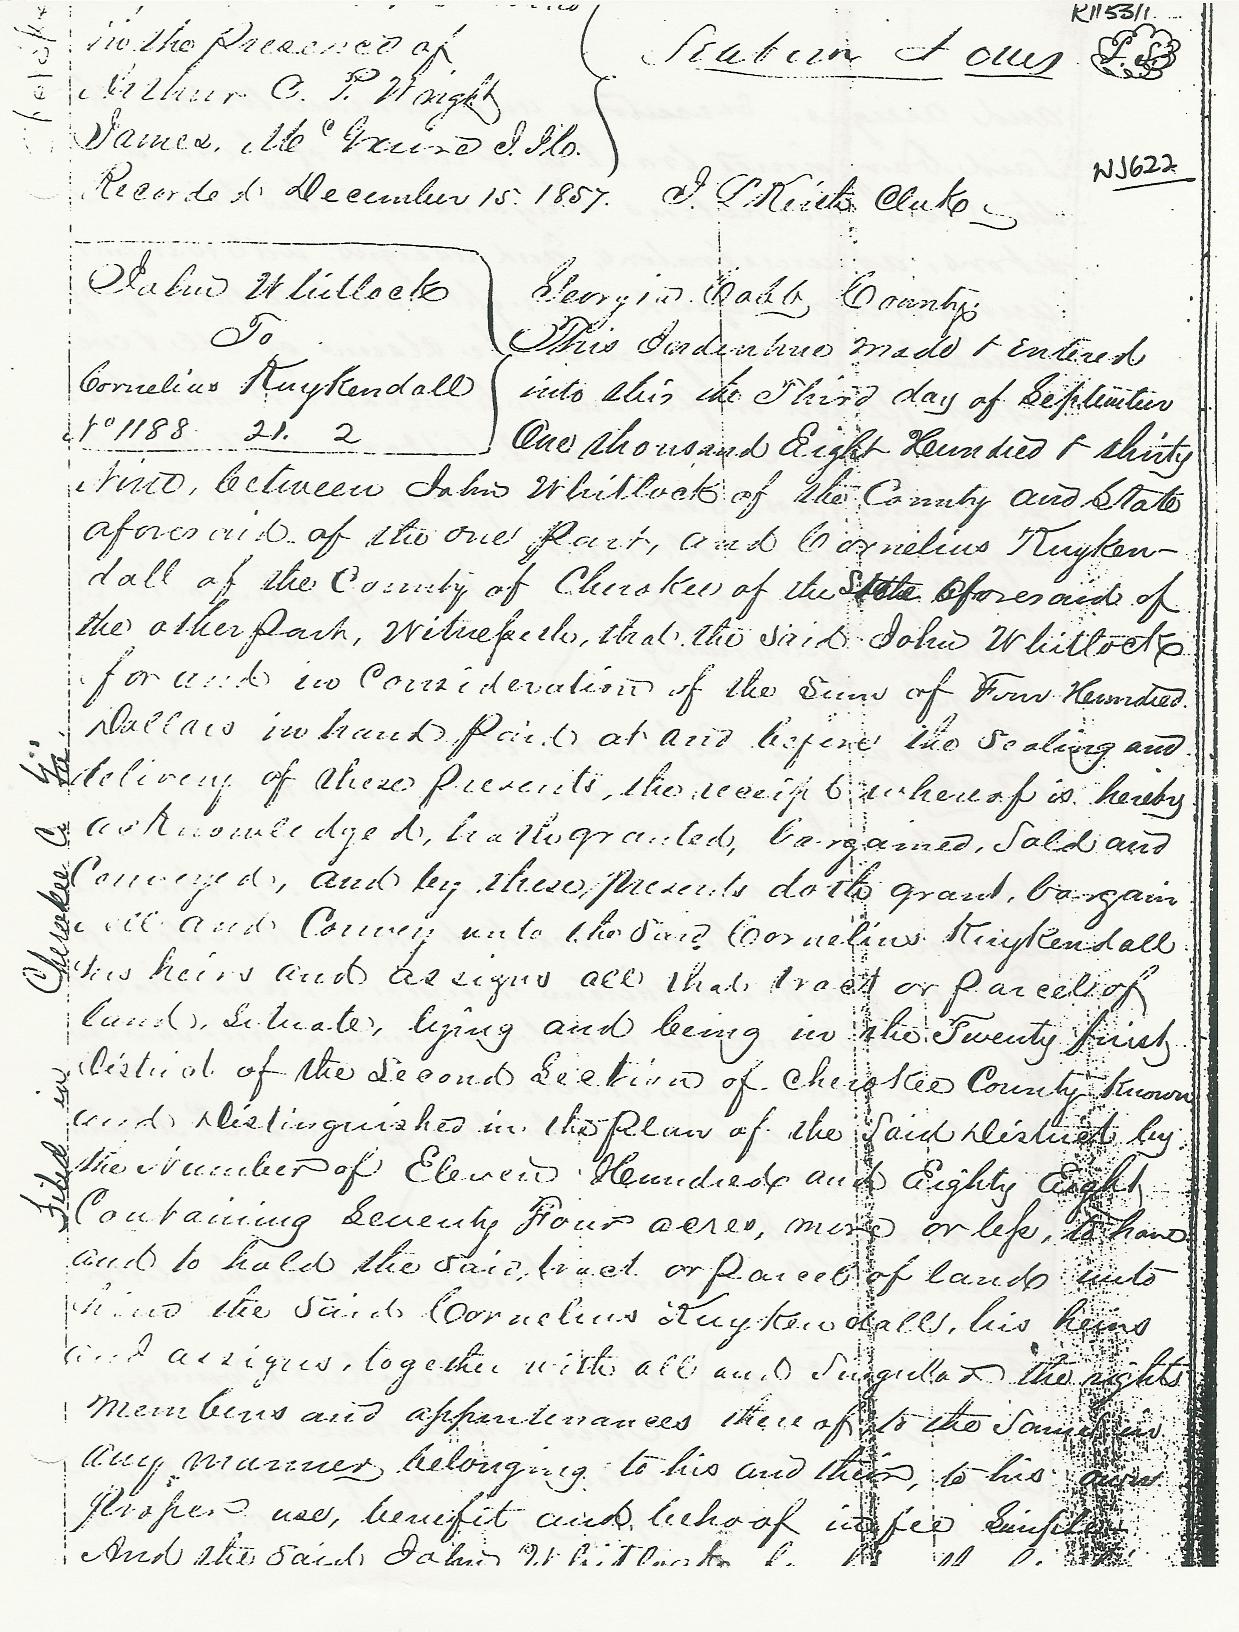 K115311
in the Presence of
Arthur C. P. Wright
L.S.
James, McGuire J.
Recorded December 15. 1857. Clerk
NJ622
John Whitlock
To
Cornelius Kuykendall
No 1188 21. 2
Georgia Cobb County
This Indenture made & Entered
into this the Third day of September
One thousand Eight Hundred & thirty
Nine, between John Whitlock of the County and State
aforesaid of the one Part, and Cornelius Kuyken-
dall of the County of Cherokee of the State aforesaid of
the other Part, Witnesseth, that the said John Whitlock
for and in Consideration of the Sum of Four Hundred
Dollars in hand Paid at and before the Sealing and
delivery of these Presents, the receipt whereof is hereby
acknowledged, hath granted, bargained, Sold and
Conveyed, and by these Presents doth grant, bargain
sell and Convey unto the said Cornelius Kuykendall
his heirs and assigns all that tract or Parcel of
land, Situate, lying and being in the Twenty first
District of the Second Section of Cherokee County Known
and Distinguished in the Plan of the Said District by
the Number of Eleven Hundred and Eighty Eight
Containing Seventy Four acres, more or less, to have
and to hold the said tract or Parcel of land unto
him the Said Cornelius Kuykendall, his heirs
and assigns, together with all and Singular the rights
members and appurtenances there of to the Same in
any manner belonging to his and their, to his own
Proper use, benefit and behoof in fee Simple
And the said John Whitlock
Filed in Cherokee Co Ga.